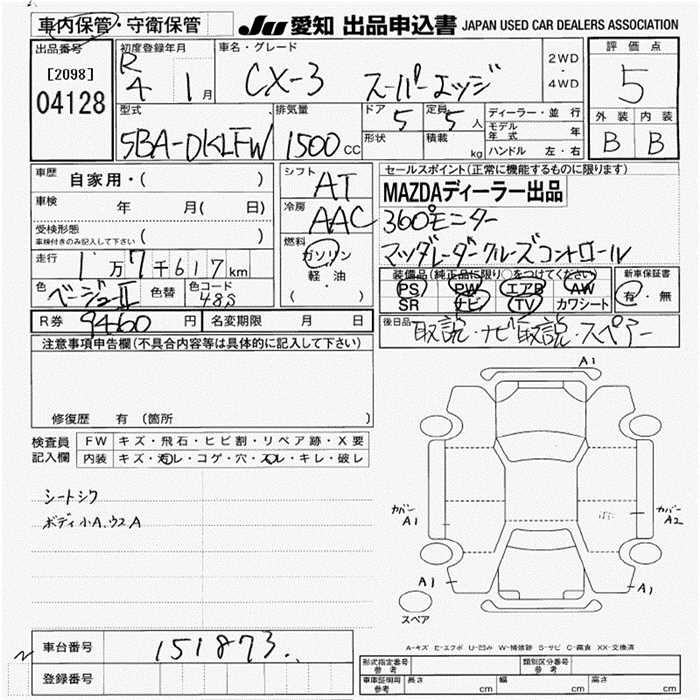 車内保管・守衛保管
JU 愛知 出品申込書 JAPAN USED CAR DEALERS ASSOCIATION
出品番号 [2098] 04128
初度登録年月 R 4 1月
車名・グレード CX-3 スーパーエッジ
2WD・4WD
評価点 5
外装 内装
B B
型式 5BA-DKLFW
排気量 1500cc
ドア 5
定員 5人
形状
積載 kg
ディーラー・並行
モデル年式 年
ハンドル 左・右
車歴 自家用・( )
車検 年 月( 日)
受検形態 車検付きのみ記入して下さい ( )
走行 1万7千617km
色 ベージュII 色替 色コード 48S
R券 9460円 名変期限 月 日
シフト AT
冷房 AAC
燃料 ガソリン 軽・油 ( )
セールスポイント(正常に機能するものに限ります)
MAZDAディーラー出品
360°モニター
マツダレーダークルーズコントロール
装備品(純正品に限り○をつけてください)
PS PW エアB AW
SR ナビ TV カワシート
新車保証書 有・無
後日品 取説・ナビ取説・スペアー
注意事項申告欄(不具合内容等は具体的に記入して下さい)
修復歴 有 (箇所 )
検査員記入欄
FW キズ・飛石・ヒビ割・リペア跡・X要
内装 キズ・汚レ・コゲ・穴・スレ・キレ・破レ
シートシワ
ボディ小A.ウスA
A1
カバーA1
カバーA2
A1
A1
スペア
A-キズ E-エクボ U-凹み W-補修跡 S-サビ C-腐食 XX-交換済
車台番号 151873
登録番号
形式指定番号 参考
類別区分番号 参考
車庫証明用 参考 長さ cm 幅 cm 高さ cm